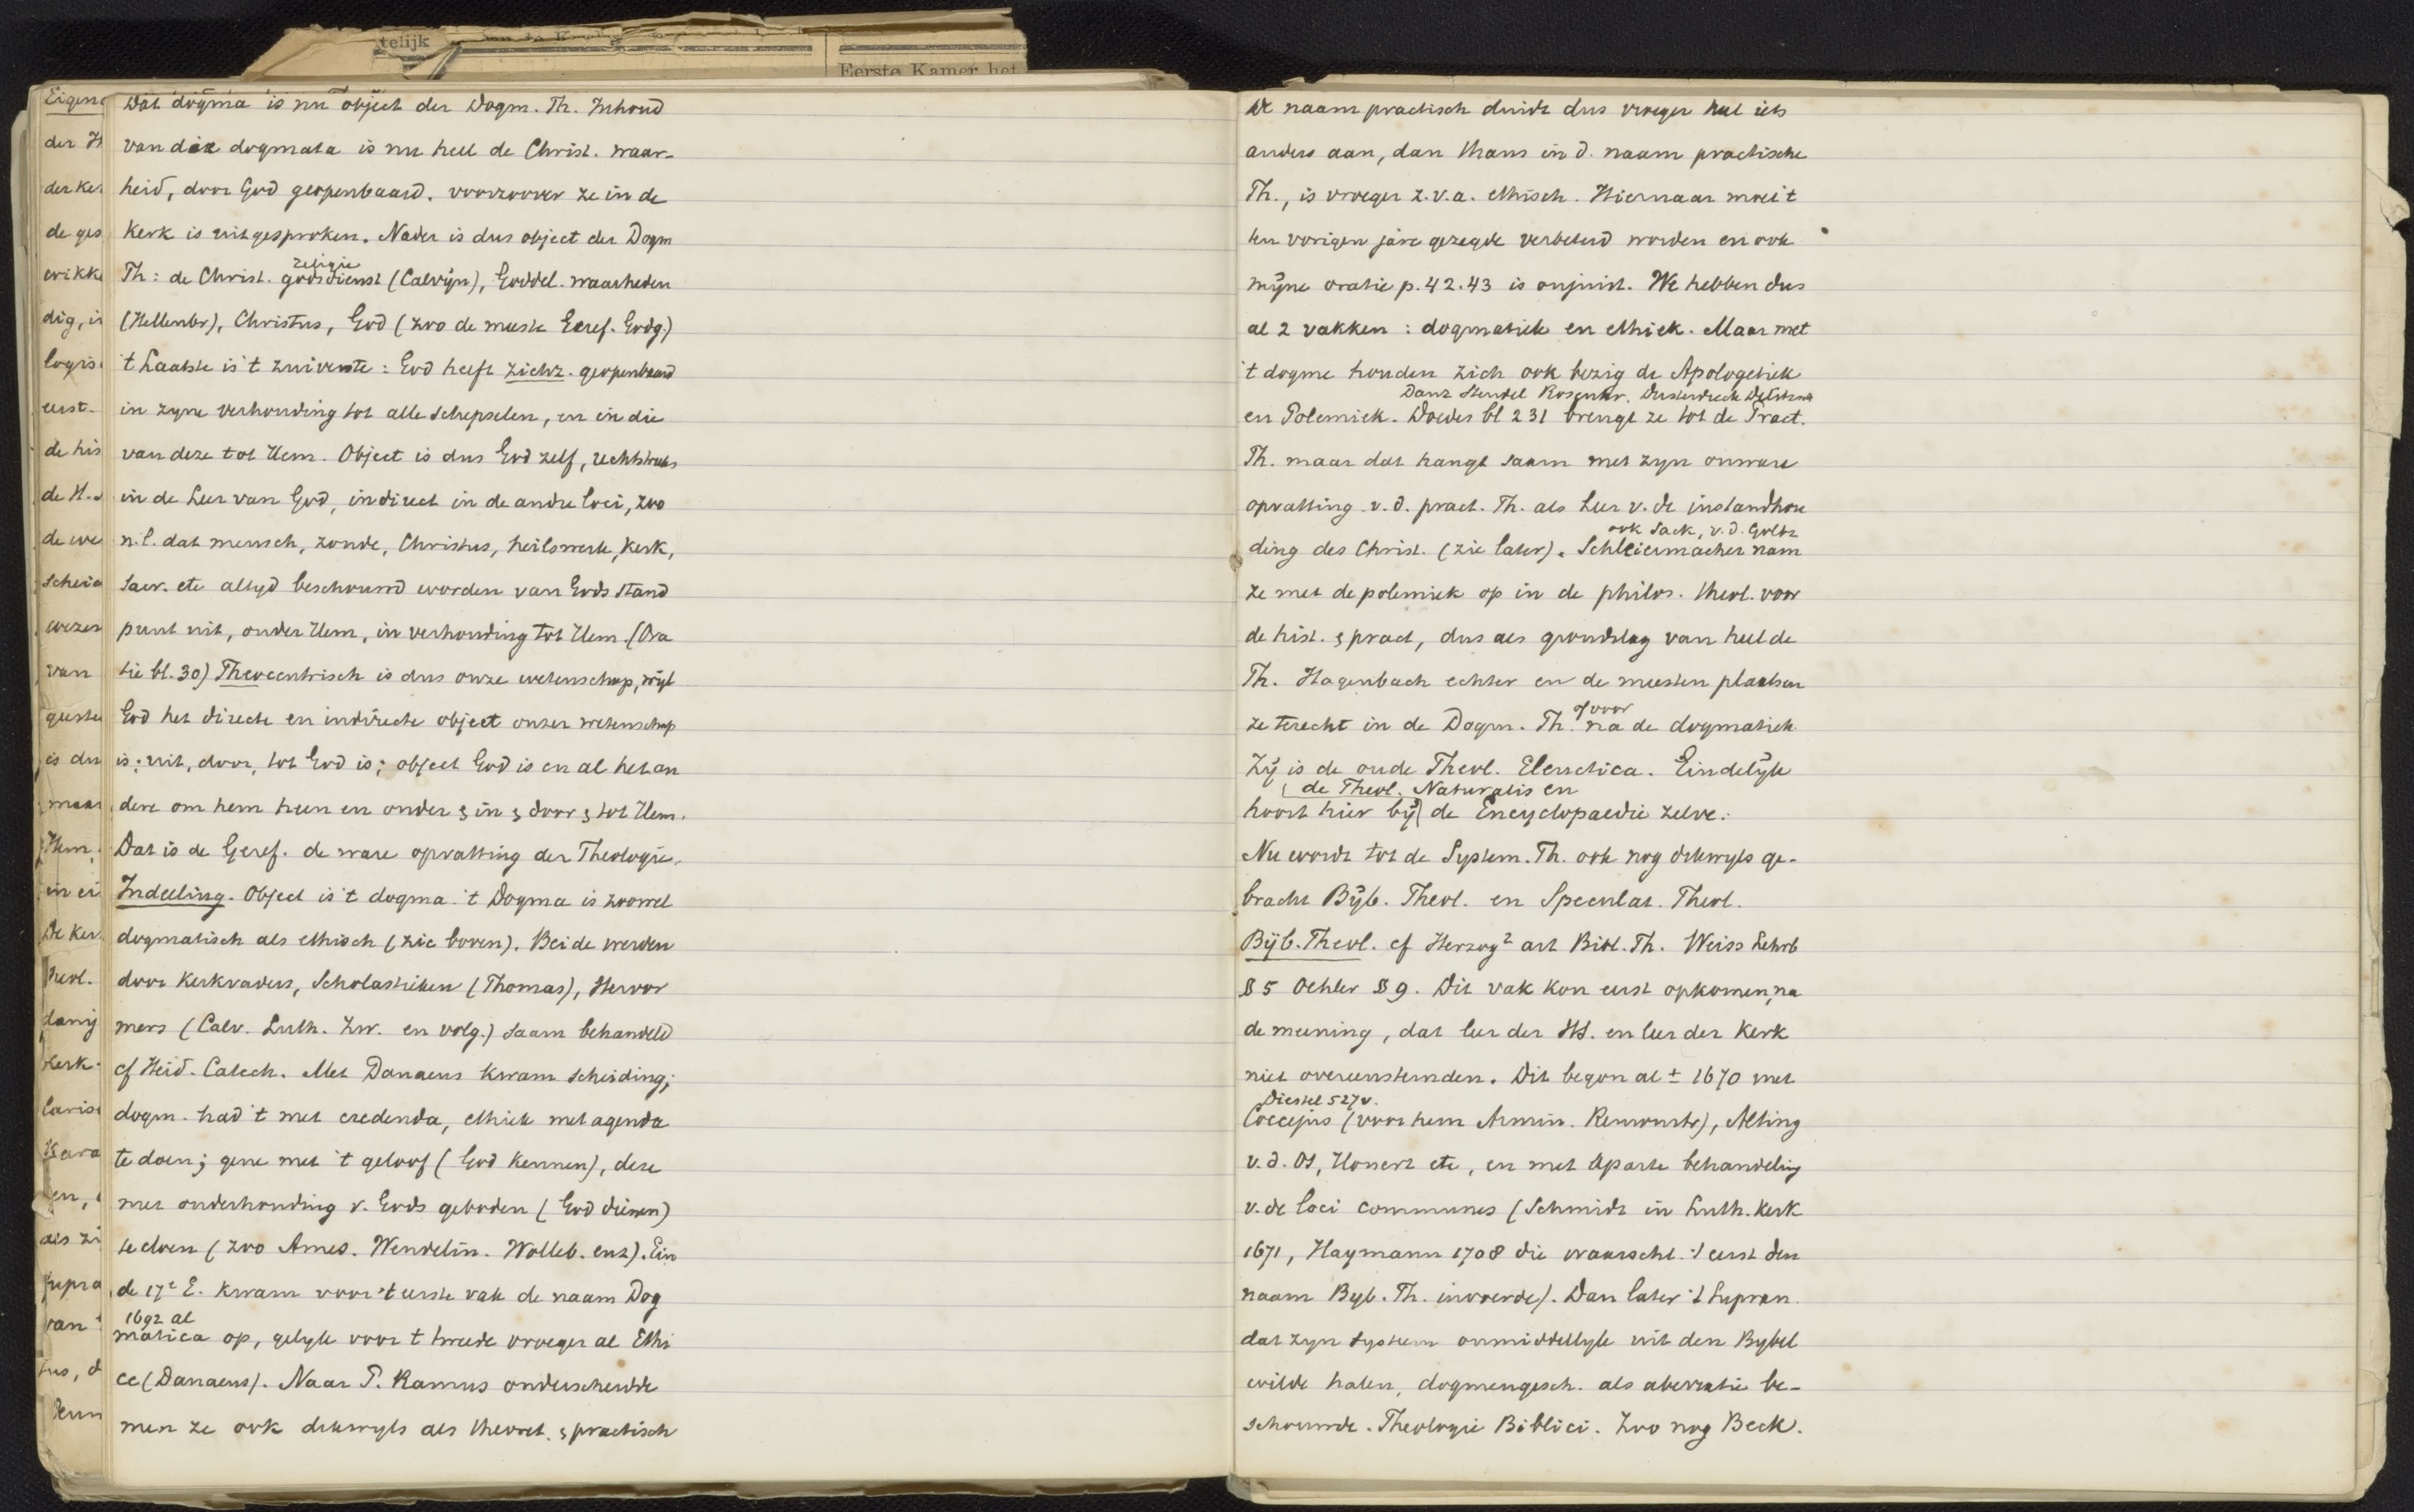 telijk
Eerste Kamer het
Eigen
der H
der Ker
de ges
wikke
dig, i
logis
eerst.
de his
de H.
de we
scheid
wezen
van
is du
maar
Hem.
in ei
De Ker
theol.
kerk
en,
als zi
supra
van
tus, d
Dat dogma is nu object der Dogm. Th. Inhoud
van die dogmata is nu heel de Christ. waar-
heid, door God geopenbaard. voorzoover ze in de
Kerk is uitgesproken. Nader is dus object der Dogm
religie
Th: de Christ. godsdienst (Calvijn), Goddel. waarheden
(Hellenbr), Christus, God (zoo de meeste Geref. Godg.)
't Laatste is 't zuiverste: God heeft zichz. geopenbaard
in zyne verhouding tot alle schepselen, en in die
van deze tot Hem. Object is dus God zelf, rechtstreeks
in de Leer van God, indirect in de andre loci, zoo
n.l. dat mensch, zonde, Christus, heilswerk, Kerk,
sacr. etc altyd beschouwd worden van Gods stand
punt uit, onder Hem, in verhouding tot Hem. (Ora
tie bl. 30) Theocentrisch is dus onze wetenschap, wijl
God het directe en indirecte object onzer wetenschap
is; uit, door, tot God is; object God is en al het an
dere om hem heen en onder & in & door & tot Hem.
Dat is de Geref. de ware opvatting der Theologie.
Indeeling. Object is 't dogma. 't Dogma is zoowel
dogmatisch als ethisch (zie boven). Beide werden
door Kerkvaders, Scholastieken (Thomas), Hervor
mers (Calv. Luth. Zw. en volg.) saam behandeld
cf Heid. Catech. Met Danaeus kwam scheiding;
dogm. had 't met credenda, ethiek met agenda
te doen; gene met 't geloof (God Kennen), deze
met onderhouding v. Gods geboden (God dienen)
te doen (zoo Ames. Wendelin. Wolleb. enz). Ein
de 17e E. kwam voor 't eerste vak de naam Dog
1692 al
matica op, gelyk voor t tweede vroeger al Ethi
ce (Danaeus). Naar P. Ramus onderscheidde
men ze ook dikwyls als theoret. & practisch
De naam practisch duidt dus vroeger heel iets
anders aan, dan thans in d. naam practische
Th., is vroeger z.v.a. ethisch. Hiernaar moet 't
ten vorigen jare gezegde verbeterd worden en ook
mijne oratie p. 42.43 is onjuist. We hebben dus
al 2 vakken: dogmatiek en ethiek. Maar met
't dogme houden zich ook bezig de Apologetiek
Danz Steudel Rosenkr. Dusterdieck Delitzsch
en Polemiek. Doedes bl 231 brengt ze tot de Pract.
Th. maar dat hangt saam met zyn onware
opvatting v. d. pract. Th. als Leer v. de instandhou
ook Sack, v. d. Goltz
ding des Christ. (zie later). Schleiermacher nam
ze met de polemiek op in de philos. theol. voor
de hist. & pract, dus als grondslag van heel de
Th. Hagenbach echter en de meesten plaatsen
of voor
ze terecht in de Dogm. Th. na de dogmatiek
Zij is de oude Theol. Elenctica. Eindelijk
de Theol. Naturalis en
hoort hier bij de Encyclopaedie zelve.
Nu wordt tot de System. Th. ook nog dikwyls ge-
bracht Bijb. Theol. en Speculat. Theol.
Bijb. Theol. cf Herzog2 art Bibl. Th. Weiss Lehrb
§ 5 Oehler § 9. Dit vak kon eerst opkomen, na
de meening, dat leer der HS. en leer der Kerk
niet overeenstemden. Dit begon al ± 1670 met
Diestel 527v.
Coccejus (voor hem Armin. Remonstr), Alting
v. d. Os, Honert etc, en met aparte behandeling
v. de loci communes (Schmidt in Luth. Kerk
1671, Haymann 1708 die waarscht. 't eerst den
naam Byb. Th. invoerde). Dan later 't Supran.
dat zyn system onmiddellyk uit den Bybel
wilde halen, dogmengesch. als aberratie be-
schouwde. Theologie Biblici. Zoo nog Beck.